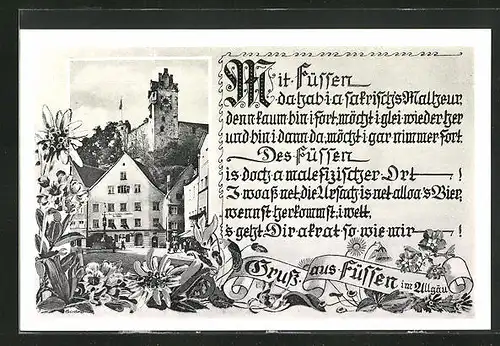 Mit Füssen
da hab i a sakrisch's Malheur,
denn kaum bin i fort, möcht i glei wieder her
und bin i dann da, möcht i gar nimmer fort.
Des Füssen
is doch a malefizischer Ort — !
I woaß net, die Ursach is net alloa 's Bier,
wennst herkommst, i wett,
's geht Dir akrat so wie mir — !
Gruß aus Füssen im Allgäu